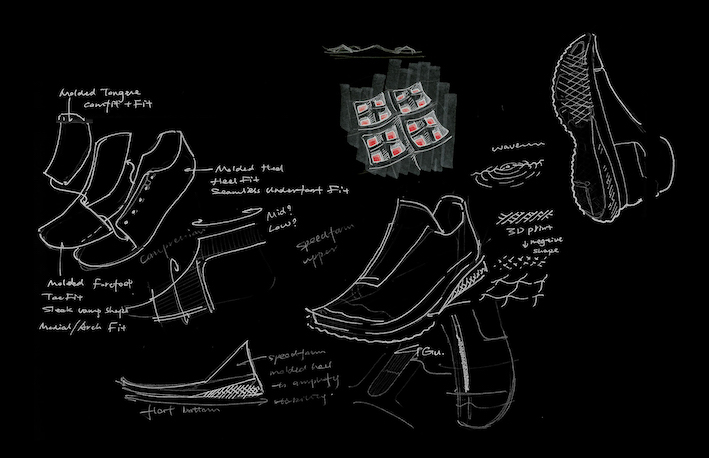 Molded Tongue
comfit + Fit
Molded Heel
Heel Fit
Seamless Underfoot Fit
Molded Forefoot
Toe Fit
Sleek vamp shape
Medial/Arch Fit
compression
Mid?
Low?
speedform
upper
3D print
negative
shape
speedform
molded heel
to amplify
flat bottom